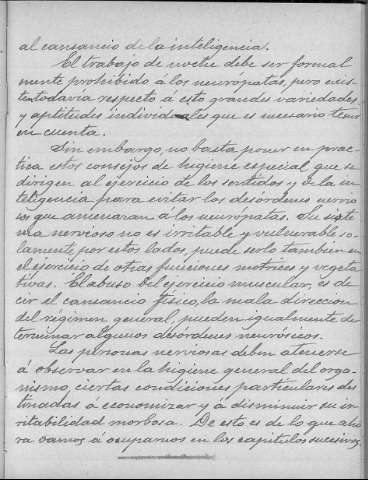 al cansancio de la inteligencia.
El trabajo de noche debe ser formal
mente prohibido á los neurópatas, pero exis-
ten todavía respecto á esto grandes variedades
y aptitudes individuales que es necesario tener
en cuenta.
Sin embargo, no basta poner en prac-
tica estos consejos de higiene especial que se
dirigen al ejercicio de los sentidos y de la in
teligencia para evitar los desórdenes nervio
sos que amenazan a los neurópatas. Su siste
ma nervioso no es irritable y vulnerable so-
lamente por estos lados, puede serlo tambien en
el ejercicio de otras funciones motrices y vegeta
tivas. El abuso del ejercicio muscular, es de
cir el cansancio físico, la mala direccion
del régimen general, pueden igualmente de
terminar algunos desórdenes neurósicos.
Las personas nerviosas deben atenerse
á observar en la higiene general del orga-
nismo, ciertas condiciones particulares des
tinadas a economizar y á disminuir su ir-
ritabilidad morbosa. De esto es de lo que aho
ra vamos á ocuparnos en los capitulos sucesivos.